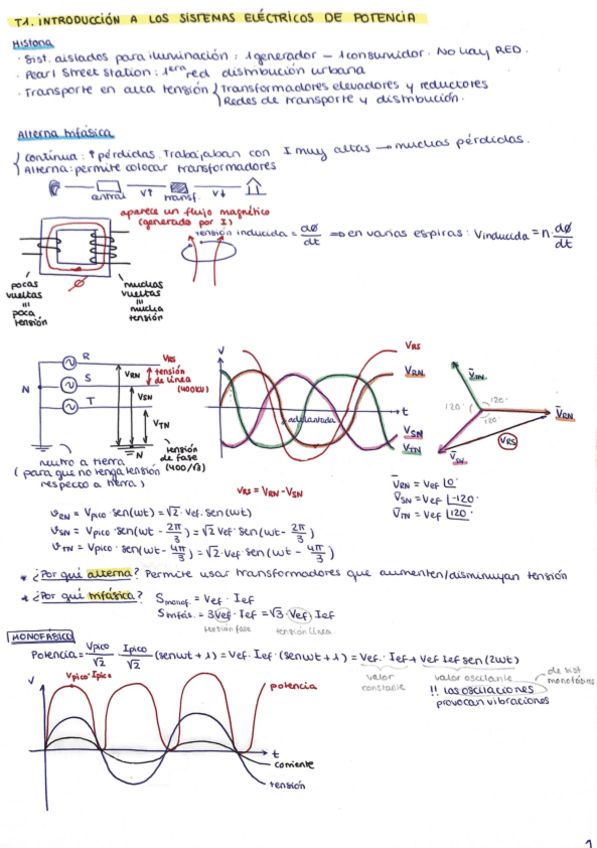 T1. INTRODUCCIÓN A LOS SISTEMAS ELÉCTRICOS DE POTENCIA
Historia
· Sist. aislados para iluminación: 1 generador – 1 consumidor. No hay RED.
· Pearl Street Station: 1era red distribución urbana
· Transporte en alta tensión { Transformadores elevadores y reductores
Redes de transporte y distribución.
Alterna trifásica
{ Continua: ↑ pérdidas. Trabajaban con I muy altas → muchas pérdidas.
Alterna: permite colocar transformadores
central V↑ transf. V↓
aparece un flujo magnético
(generado por I)
tensión inducida = dø/dt ⇒ en varias espiras: Vinducida = n · dø/dt
pocas
vueltas
=
poca
tensión
ø
muchas
vueltas
=
mucha
tensión
N
R
S
T
VRN
VSN
VTN
VRS
tensión
de línea
(400kV)
≡N
tensión
de fase
(400/√3)
neutro a tierra
(para que no tenga tensión
respecto a tierra)
V
VRS
VRN
t
adelantada
VSN
VTN
VRS = VRN - VSN
V̄TN
120°
120°
120°
V̄RN
VRS
V̄SN
V̄RN = Vef |0°
V̄SN = Vef |-120°
V̄TN = Vef |120°
vRN = Vpico · sen(wt) = √2 · Vef · sen(wt)
vSN = Vpico · sen(wt - 2π/3) = √2 Vef · sen(wt - 2π/3)
vTN = Vpico · sen(wt - 4π/3) = √2 · Vef · sen(wt - 4π/3)
* ¿Por qué alterna? Permite usar transformadores que aumenten/disminuyan tensión
* ¿Por qué trifásica? Smonof. = Vef · Ief
Strifás. = 3 Vef · Ief = √3 · Vef · Ief
tensión fase tensión línea
MONOFÁSICO
Potencia = Vpico/√2 · Ipico/√2 (sen wt + 1) = Vef · Ief · (sen wt + 1) = Vef · Ief + Vef Ief sen(2wt)
valor
constante
valor oscilante
de sist
monofásicos
!! Las oscilaciones
provocan vibraciones
V
Vpico · Ipico
potencia
t
corriente
tensión
1